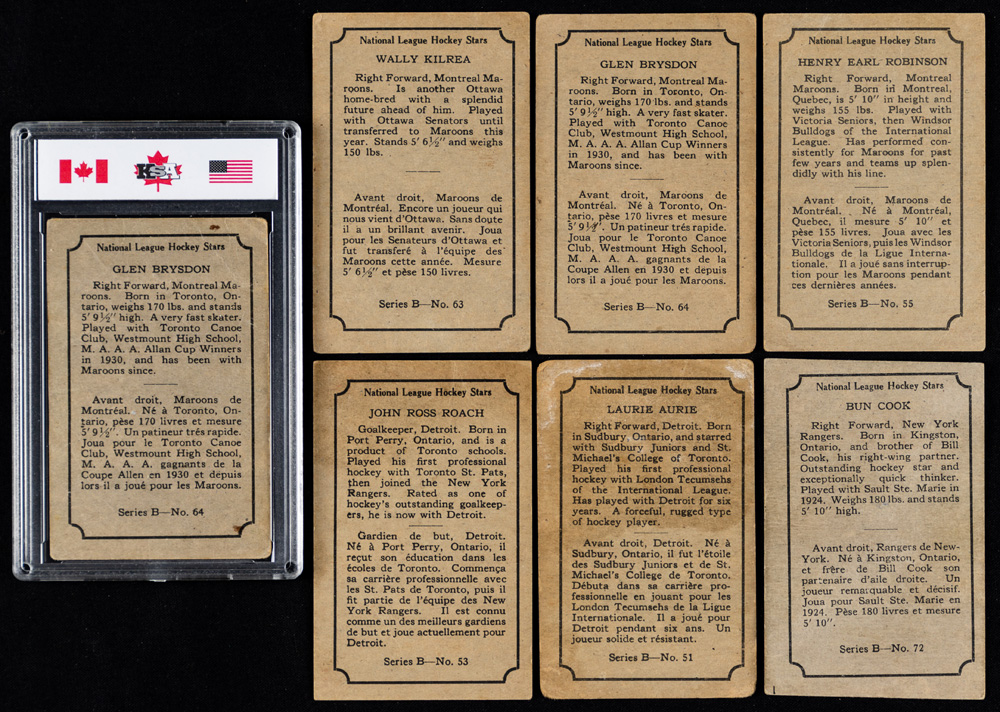 KSA
National League Hockey Stars
GLEN BRYSDON
Right Forward, Montreal Ma-
roons. Born in Toronto, On-
tario, weighs 170 lbs. and stands
5' 9½" high. A very fast skater.
Played with Toronto Canoe
Club, Westmount High School,
M. A. A. A. Allan Cup Winners
in 1930, and has been with
Maroons since.
Avant droit, Maroons de
Montréal. Né à Toronto, On-
tario, pèse 170 livres et mesure
5' 9½". Un patineur trés rapide.
Joua pour le Toronto Canoe
Club, Westmount High School,
M. A. A. A. gagnants de la
Coupe Allen en 1930 et depuis
lors il a joué pour les Maroons.
Series B—No. 64
National League Hockey Stars
WALLY KILREA
Right Forward, Montreal Ma-
roons. Is another Ottawa
home-bred with a splendid
future ahead of him. Played
with Ottawa Senators until
transferred to Maroons this
year. Stands 5' 6½" and weighs
150 lbs.
Avant droit, Maroons de
Montréal. Encore un joueur qui
nous vient d'Ottawa. Sans doute
il a un brillant avenir. Joua
pour les Senateurs d'Ottawa et
fut transferé à l'équipe des
Maroons cette année. Mesure
5' 6½" et pèse 150 livres.
Series B—No. 63
National League Hockey Stars
GLEN BRYSDON
Right Forward, Montreal Ma-
roons. Born in Toronto, On-
tario, weighs 170 lbs. and stands
5' 9½" high. A very fast skater.
Played with Toronto Canoe
Club, Westmount High School,
M. A. A. A. Allan Cup Winners
in 1930, and has been with
Maroons since.
Avant droit, Maroons de
Montréal. Né à Toronto, On-
tario, pèse 170 livres et mesure
5' 9½". Un patineur trés rapide.
Joua pour le Toronto Canoe
Club, Westmount High School,
M. A. A. A. gagnants de la
Coupe Allen en 1930 et depuis
lors il a joué pour les Maroons.
Series B—No. 64
National League Hockey Stars
HENRY EARL ROBINSON
Right Forward, Montreal
Maroons. Born in Montreal,
Quebec, is 5' 10" in height and
weighs 155 lbs. Played with
Victoria Seniors, then Windsor
Bulldogs of the International
League. Has performed con-
sistently for Maroons for past
few years and teams up splen-
didly with his line.
Avant droit, Maroons de
Montréal. Né à Montréal,
Quebec, il mesure 5' 10" et
pèse 155 livres. Joua avec les
Victoria Seniors, puis les Windsor
Bulldogs de la Ligue Interna-
tionale. Il a joué sans interrup-
tion pour les Maroons pendant
ces dernières années.
Series B—No. 55
National League Hockey Stars
JOHN ROSS ROACH
Goalkeeper, Detroit. Born in
Port Perry, Ontario, and is a
product of Toronto schools.
Played his first professional
hockey with Toronto St. Pats,
then joined the New York
Rangers. Rated as one of
hockey's outstanding goalkeep-
ers, he is now with Detroit.
Gardien de but, Detroit.
Né à Port Perry, Ontario, il
reçut son éducation dans les
écoles de Toronto. Commença
sa carrière professionnelle avec
les St. Pats de Toronto, puis il
fit partie de l'équipe des New
York Rangers. Il est connu
comme un des meilleurs gardiens
de but et joue actuellement pour
Detroit.
Series B—No. 53
National League Hockey Stars
LAURIE AURIE
Right Forward, Detroit. Born
in Sudbury, Ontario, and starred
with Sudbury Juniors and St.
Michael's College of Toronto.
Played his first professional
hockey with London Tecumsehs
of the International League.
Has played with Detroit for six
years. A forceful, rugged type
of hockey player.
Avant droit, Detroit. Né à
Sudbury, Ontario, il fut l'étoile
des Sudbury Juniors et de St.
Michael's College de Toronto.
Débuta dans sa carrière pro-
fessionnelle en jouant pour les
London Tecumsehs de la Ligue
Internationale. Il a joué pour
Detroit pendant six ans. Un
joueur solide et résistant.
Series B—No. 51
National League Hockey Stars
BUN COOK
Right Forward, New York
Rangers. Born in Kingston,
Ontario, and brother of Bill
Cook, his right-wing partner.
Outstanding hockey star and
exceptionally quick thinker.
Played with Sault Ste. Marie in
1924. Weighs 180 lbs. and stands
5' 10" high.
Avant droit, Rangers de New-
York. Né à Kingston, Ontario,
et frère de Bill Cook son
partenaire d'aile droite. Un
joueur remarquable et décisif.
Joua pour Sault Ste. Marie en
1924. Pèse 180 livres et mesure
5' 10".
Series B—No. 72